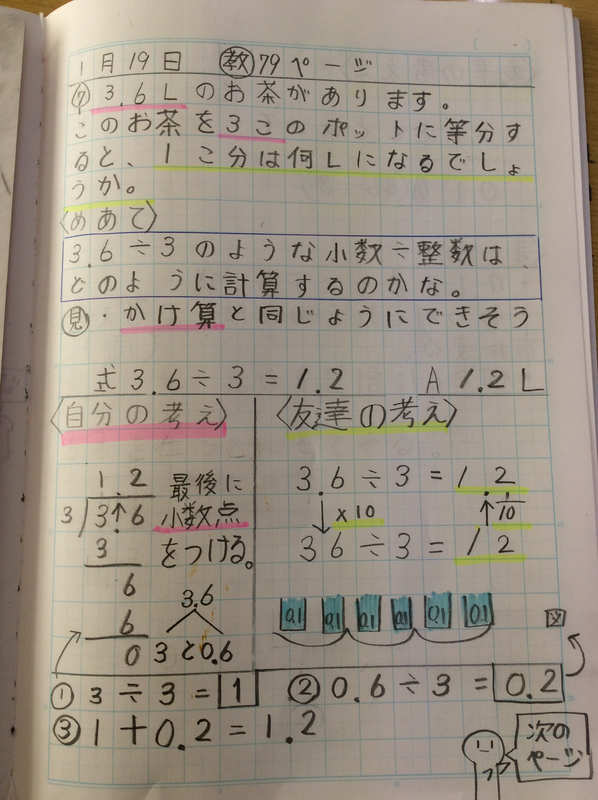 1月19日 教79ページ
問 3.6Lのお茶があります。
このお茶を3このポットに等分す
ると、1こ分は何Lになるでしょ
うか。
〈めあて〉
3.6÷3のような小数÷整数は、
どのように計算するのかな。
見・かけ算と同じようにできそう
式3.6÷3=1.2 A 1.2L
〈自分の考え〉
1.2
3)3↑6
3
6
6
0
最後に
小数点
をつける。
3.6
3と0.6
〈友達の考え〉
3.6÷3=1.2
↓×10 ↑1/10
36÷3=12
0.1 0.1 0.1 0.1 0.1 0.1
図
①3÷3=1 ②0.6÷3=0.2
③1+0.2=1.2
次の
ページ